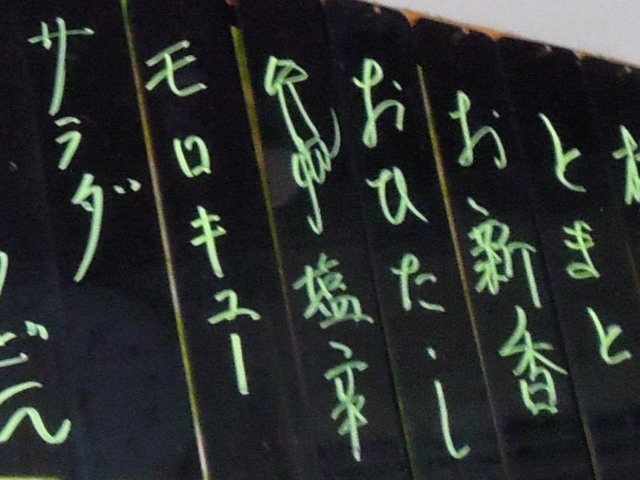 とまと
お新香
おひたし
塩辛
モロキュー
サラダ
どん